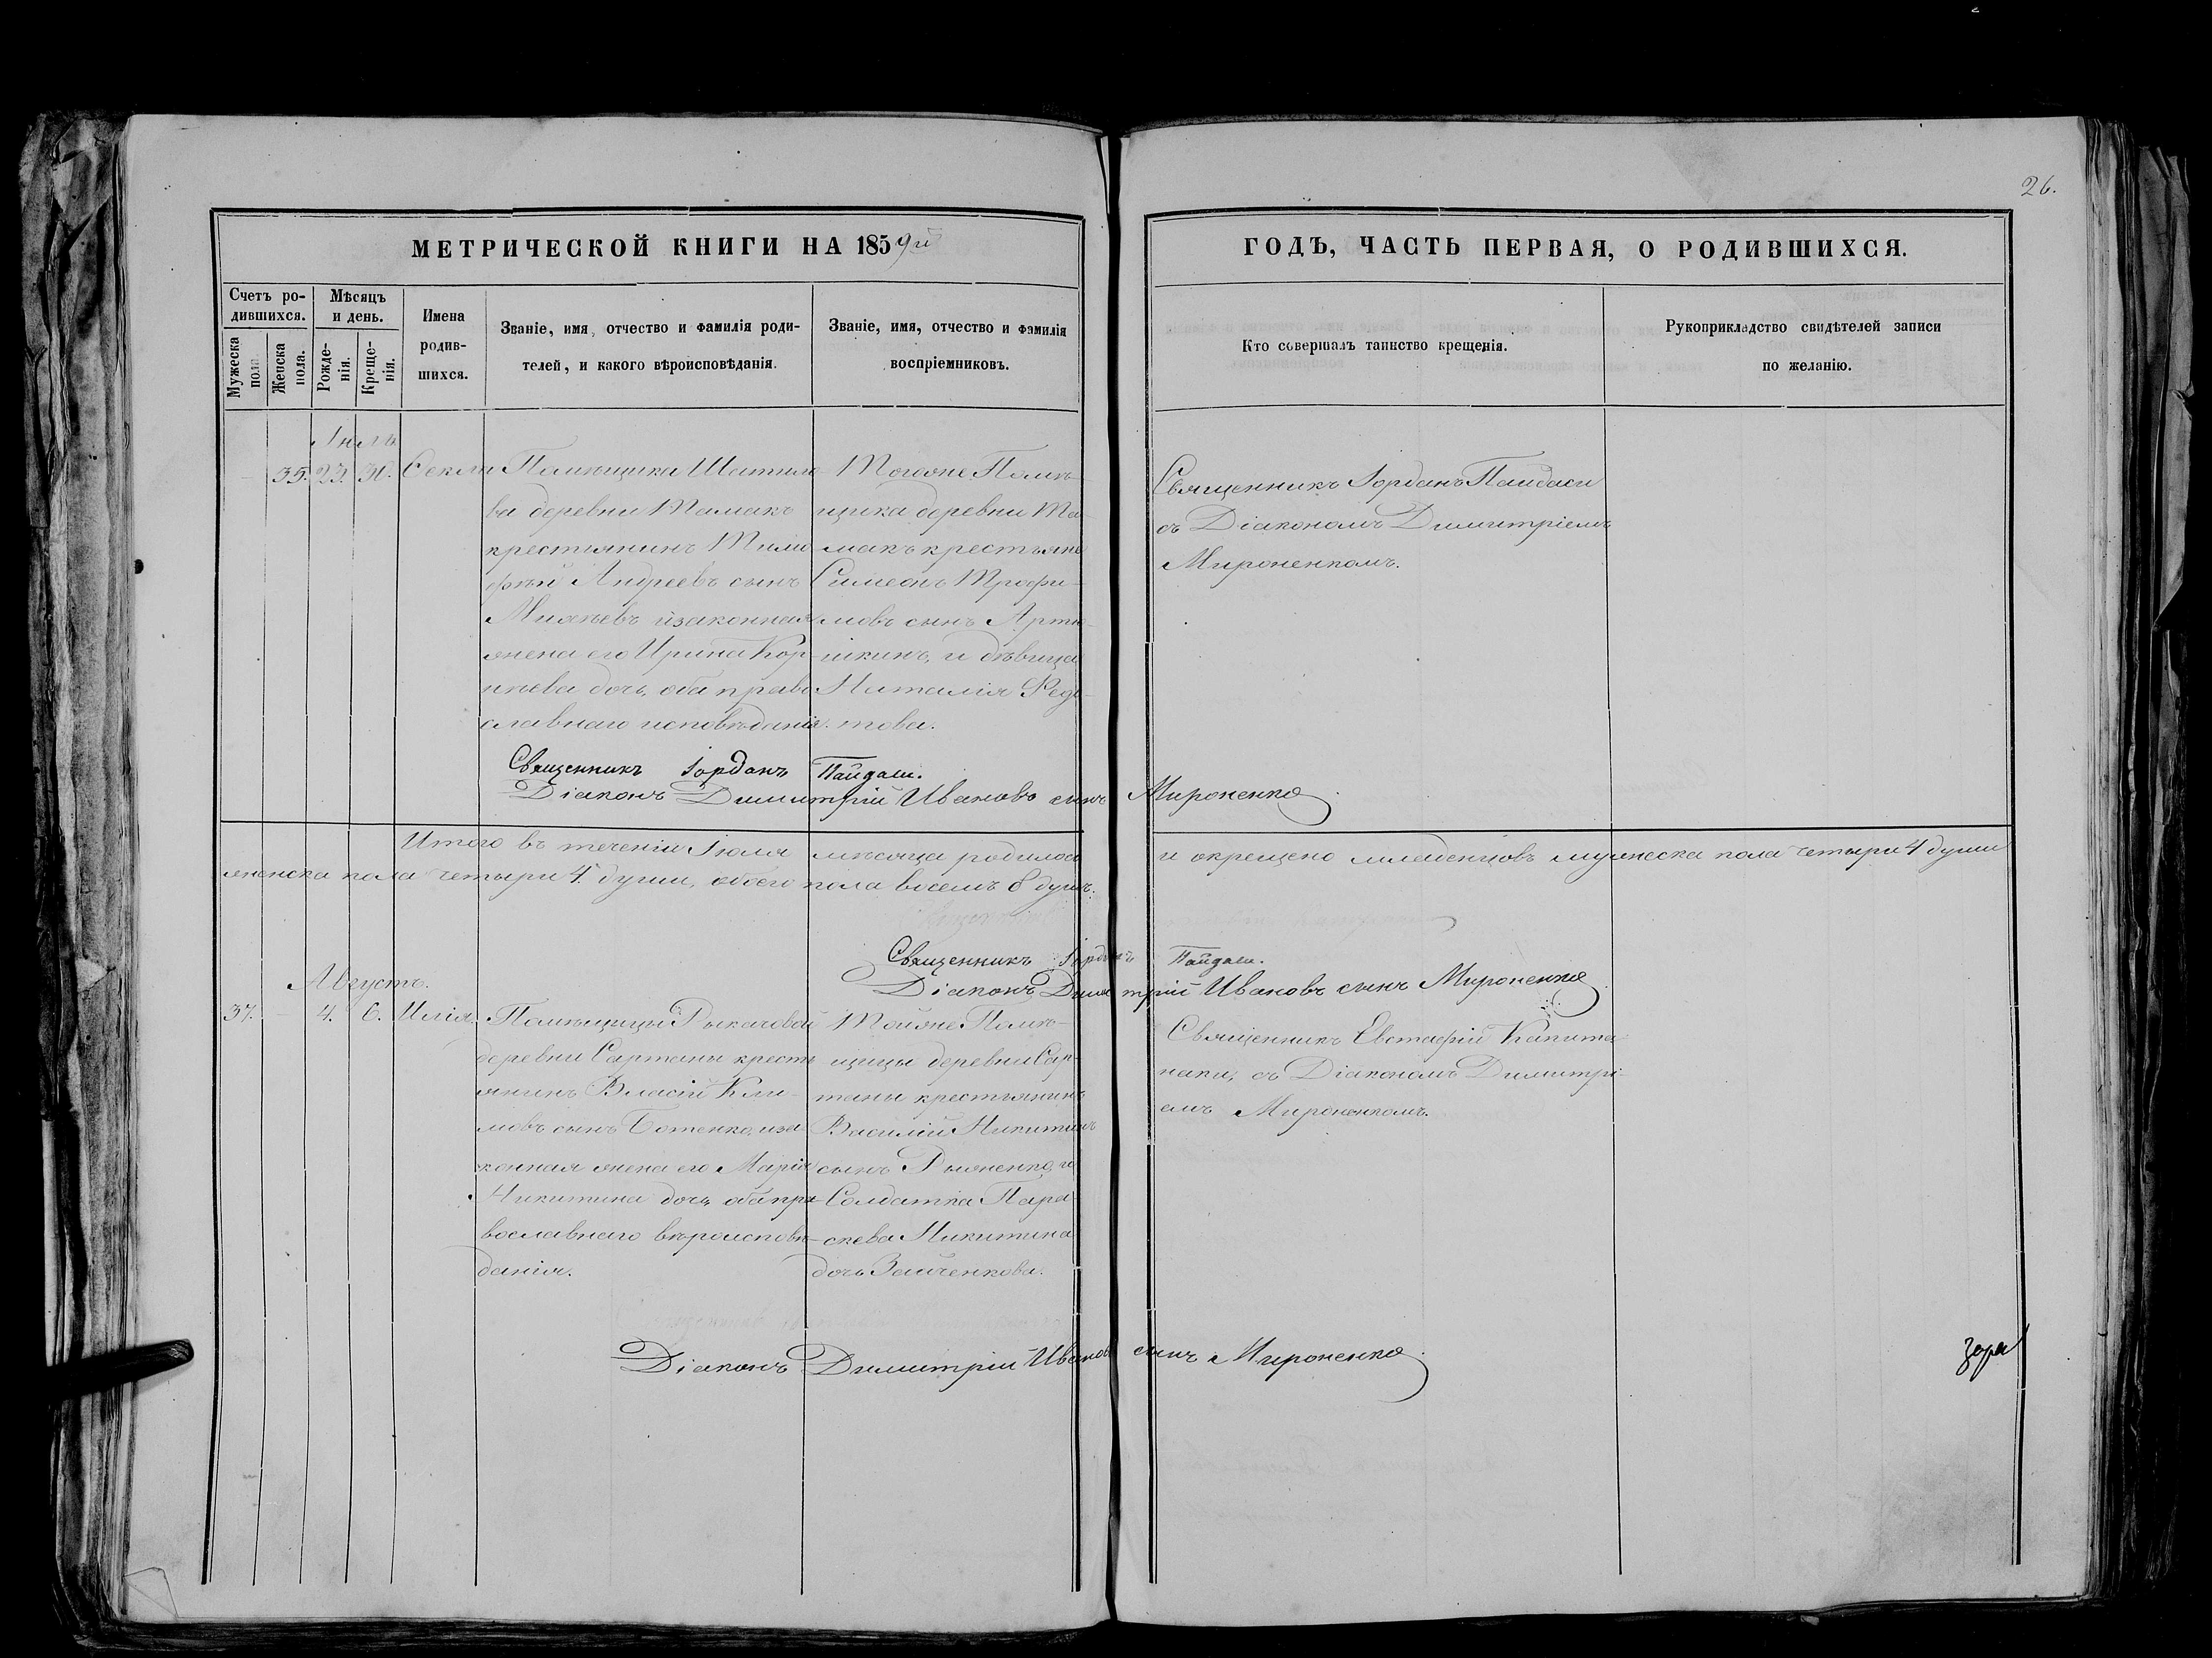 26.
МЕТРИЧЕСКОЙ КНИГИ НА 1859й
ГОДЪ, ЧАСТЬ ПЕРВАЯ, О РОДИВШИХСЯ.
Счетъ ро-
дившихся.
Мужеска
пола.
Женска
пола.
Мѣсяцъ
и день.
Рожде-
нія.
Креще-
нія.
Имена
родив-
шихся.
Званіе, имя, отчество и фамилія роди-
телей, и какого вѣроисповѣданія.
Званіе, имя, отчество и фамилія
воспріемниковъ.
Кто совершалъ таинство крещенія.
Рукоприкладство свидѣтелей записи
по желанію.
35. 23.
Помѣщика Шатило-
ва деревни Тамакъ
крестьянинъ Тимо
фѣй Андреевъ сынъ
изаконная
жена его Ирина Кор-
нѣева дочь, оба право
славнаго исповѣданія.
Тогоже Помѣ-
щика деревни Та-
макъ крестьяне
Симеонъ Трофи-
мовъ сынъ Артю-
шкинъ, и дѣвица
Наталія Федо-
това.
Священникъ Іорданъ Пайдаси
съ Діакономъ Димитріемъ
Мироненкомъ.
Священникъ Іорданъ Пайдаси.
Діаконъ Димитрій Ивановъ сынъ Мироненко
Итого въ теченіи Іюля мѣсяца родилось и окрещено младенцовъ мужеска пола четыри 4 души
женска пола четыри 4. души, обоего пола восемъ 8 душъ.
Священникъ Іорданъ Пайдаси.
Діаконъ Димитрій Ивановъ сынъ Мироненко
Августъ.
37. - 4. 6. Илія.
Помѣщицы Рыкачовой
деревни Сартаны кресть
янинъ Власій Кли-
мовъ сынъ Ботенко, иза
конная жена его Марія
Никитина дочь, оба пра-
вославнаго вѣроисповѣ-
данія.
Тойже Помѣ-
щицы деревни Сар-
таны крестьянинъ
Василій Никитинъ
сынъ и
Солдатка Пара-
скева Никитина
дочь Зайченкова.
Священникъ Евстафій Капита-
наки, съ Діакономъ Димитрі-
емъ Мироненкомъ.
Діаконъ Димитрій Ивановъ сынъ Мироненко